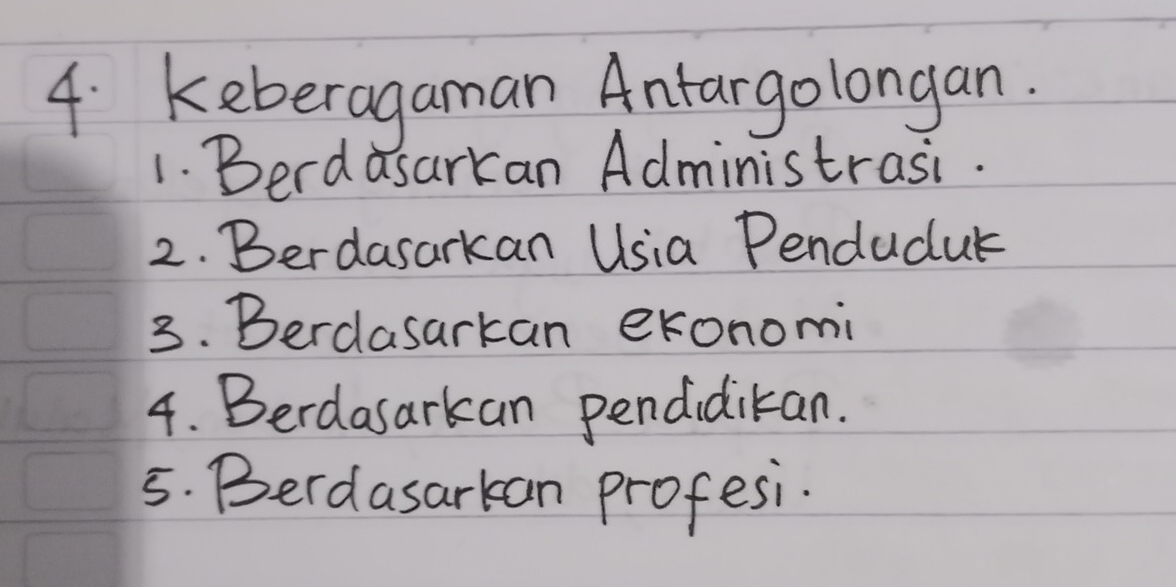 4. Keberagaman Antargolongan.
1. Berdasarkan Administrasi.
2. Berdasarkan Usia Penduduk
3. Berdasarkan ekonomi
4. Berdasarkan pendidikan.
5. Berdasarkan profesi.